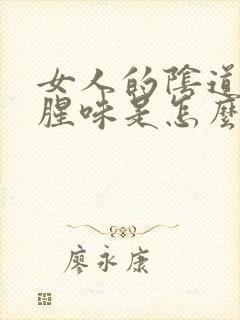 女人的陰道
腥味是怎麼
廖永康